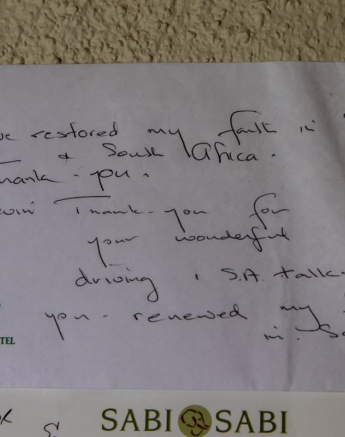 restored my faith in
& South Africa.
Thank-you.
Thank-you for
your wonderful
driving & S.A. talk-
you - renewed my
in. So
TEL
SABI SABI